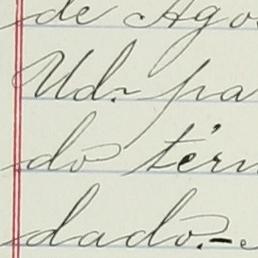 de Ago
Ud. pa
do térm
dado.-